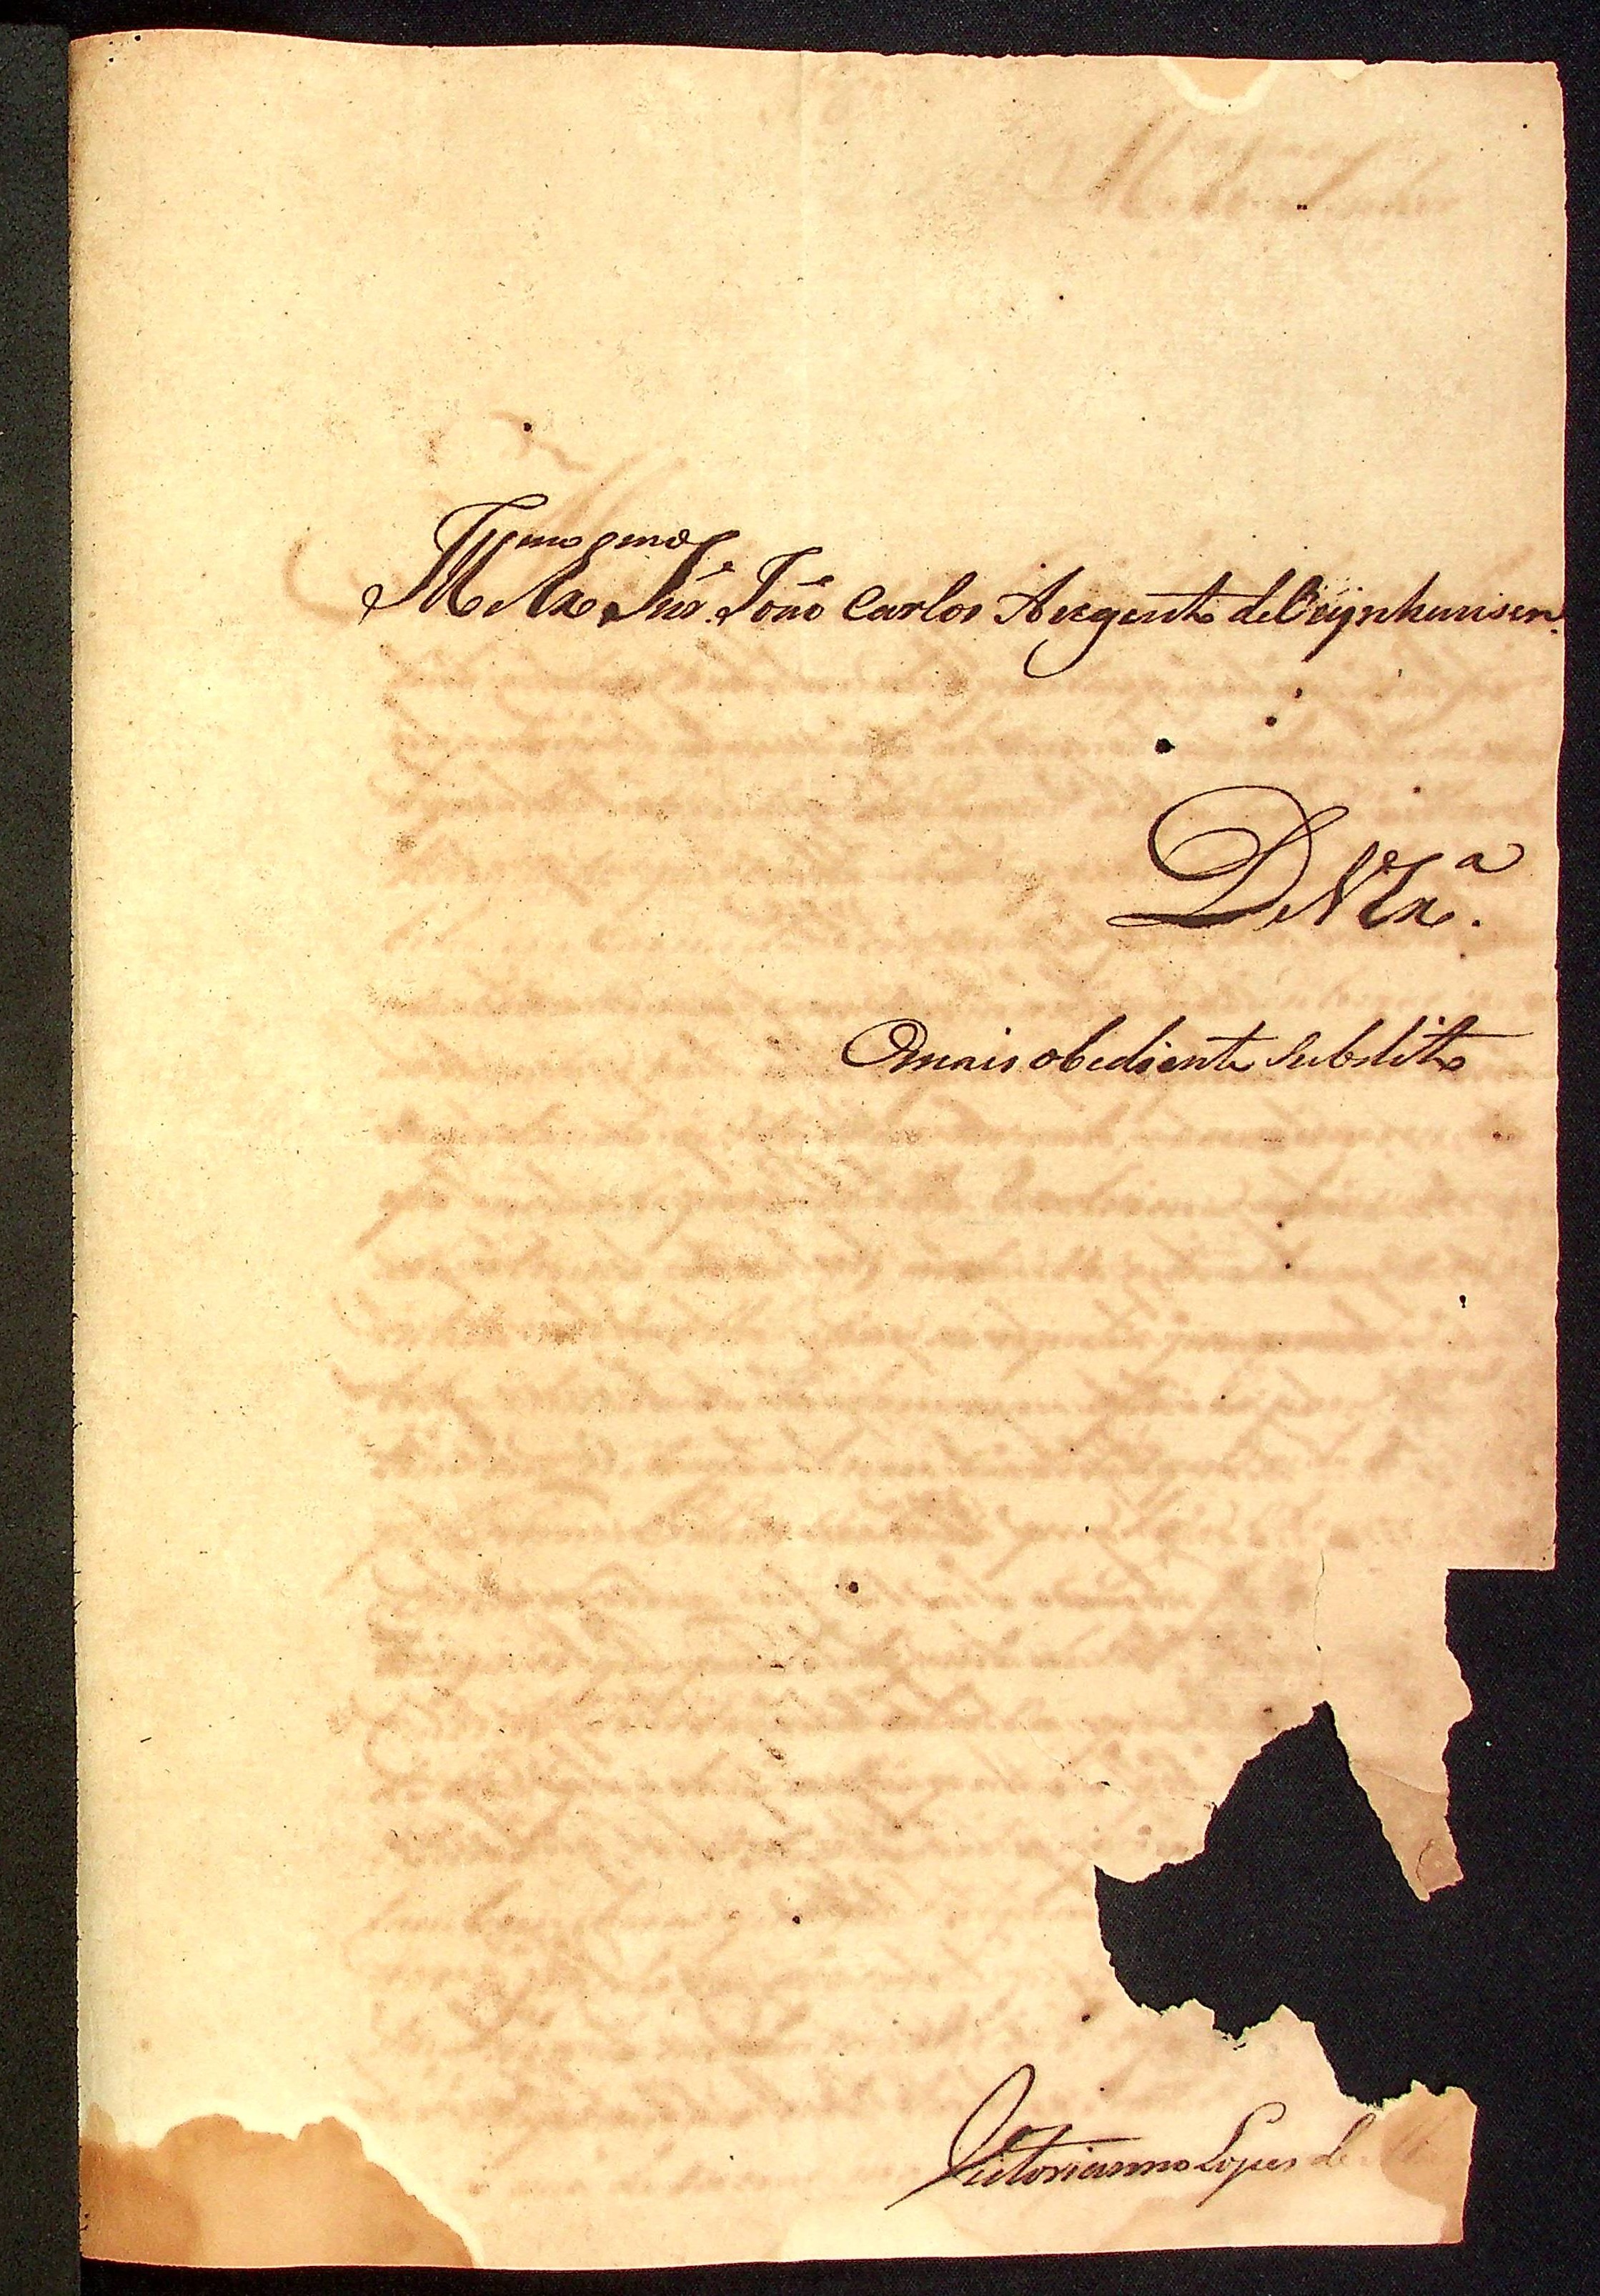 Illmo Exmo Snr. João Carlos Augusto de Oeynhausen.
De V Exa.
O mais obediente Subdito
Victorianno Lopes de